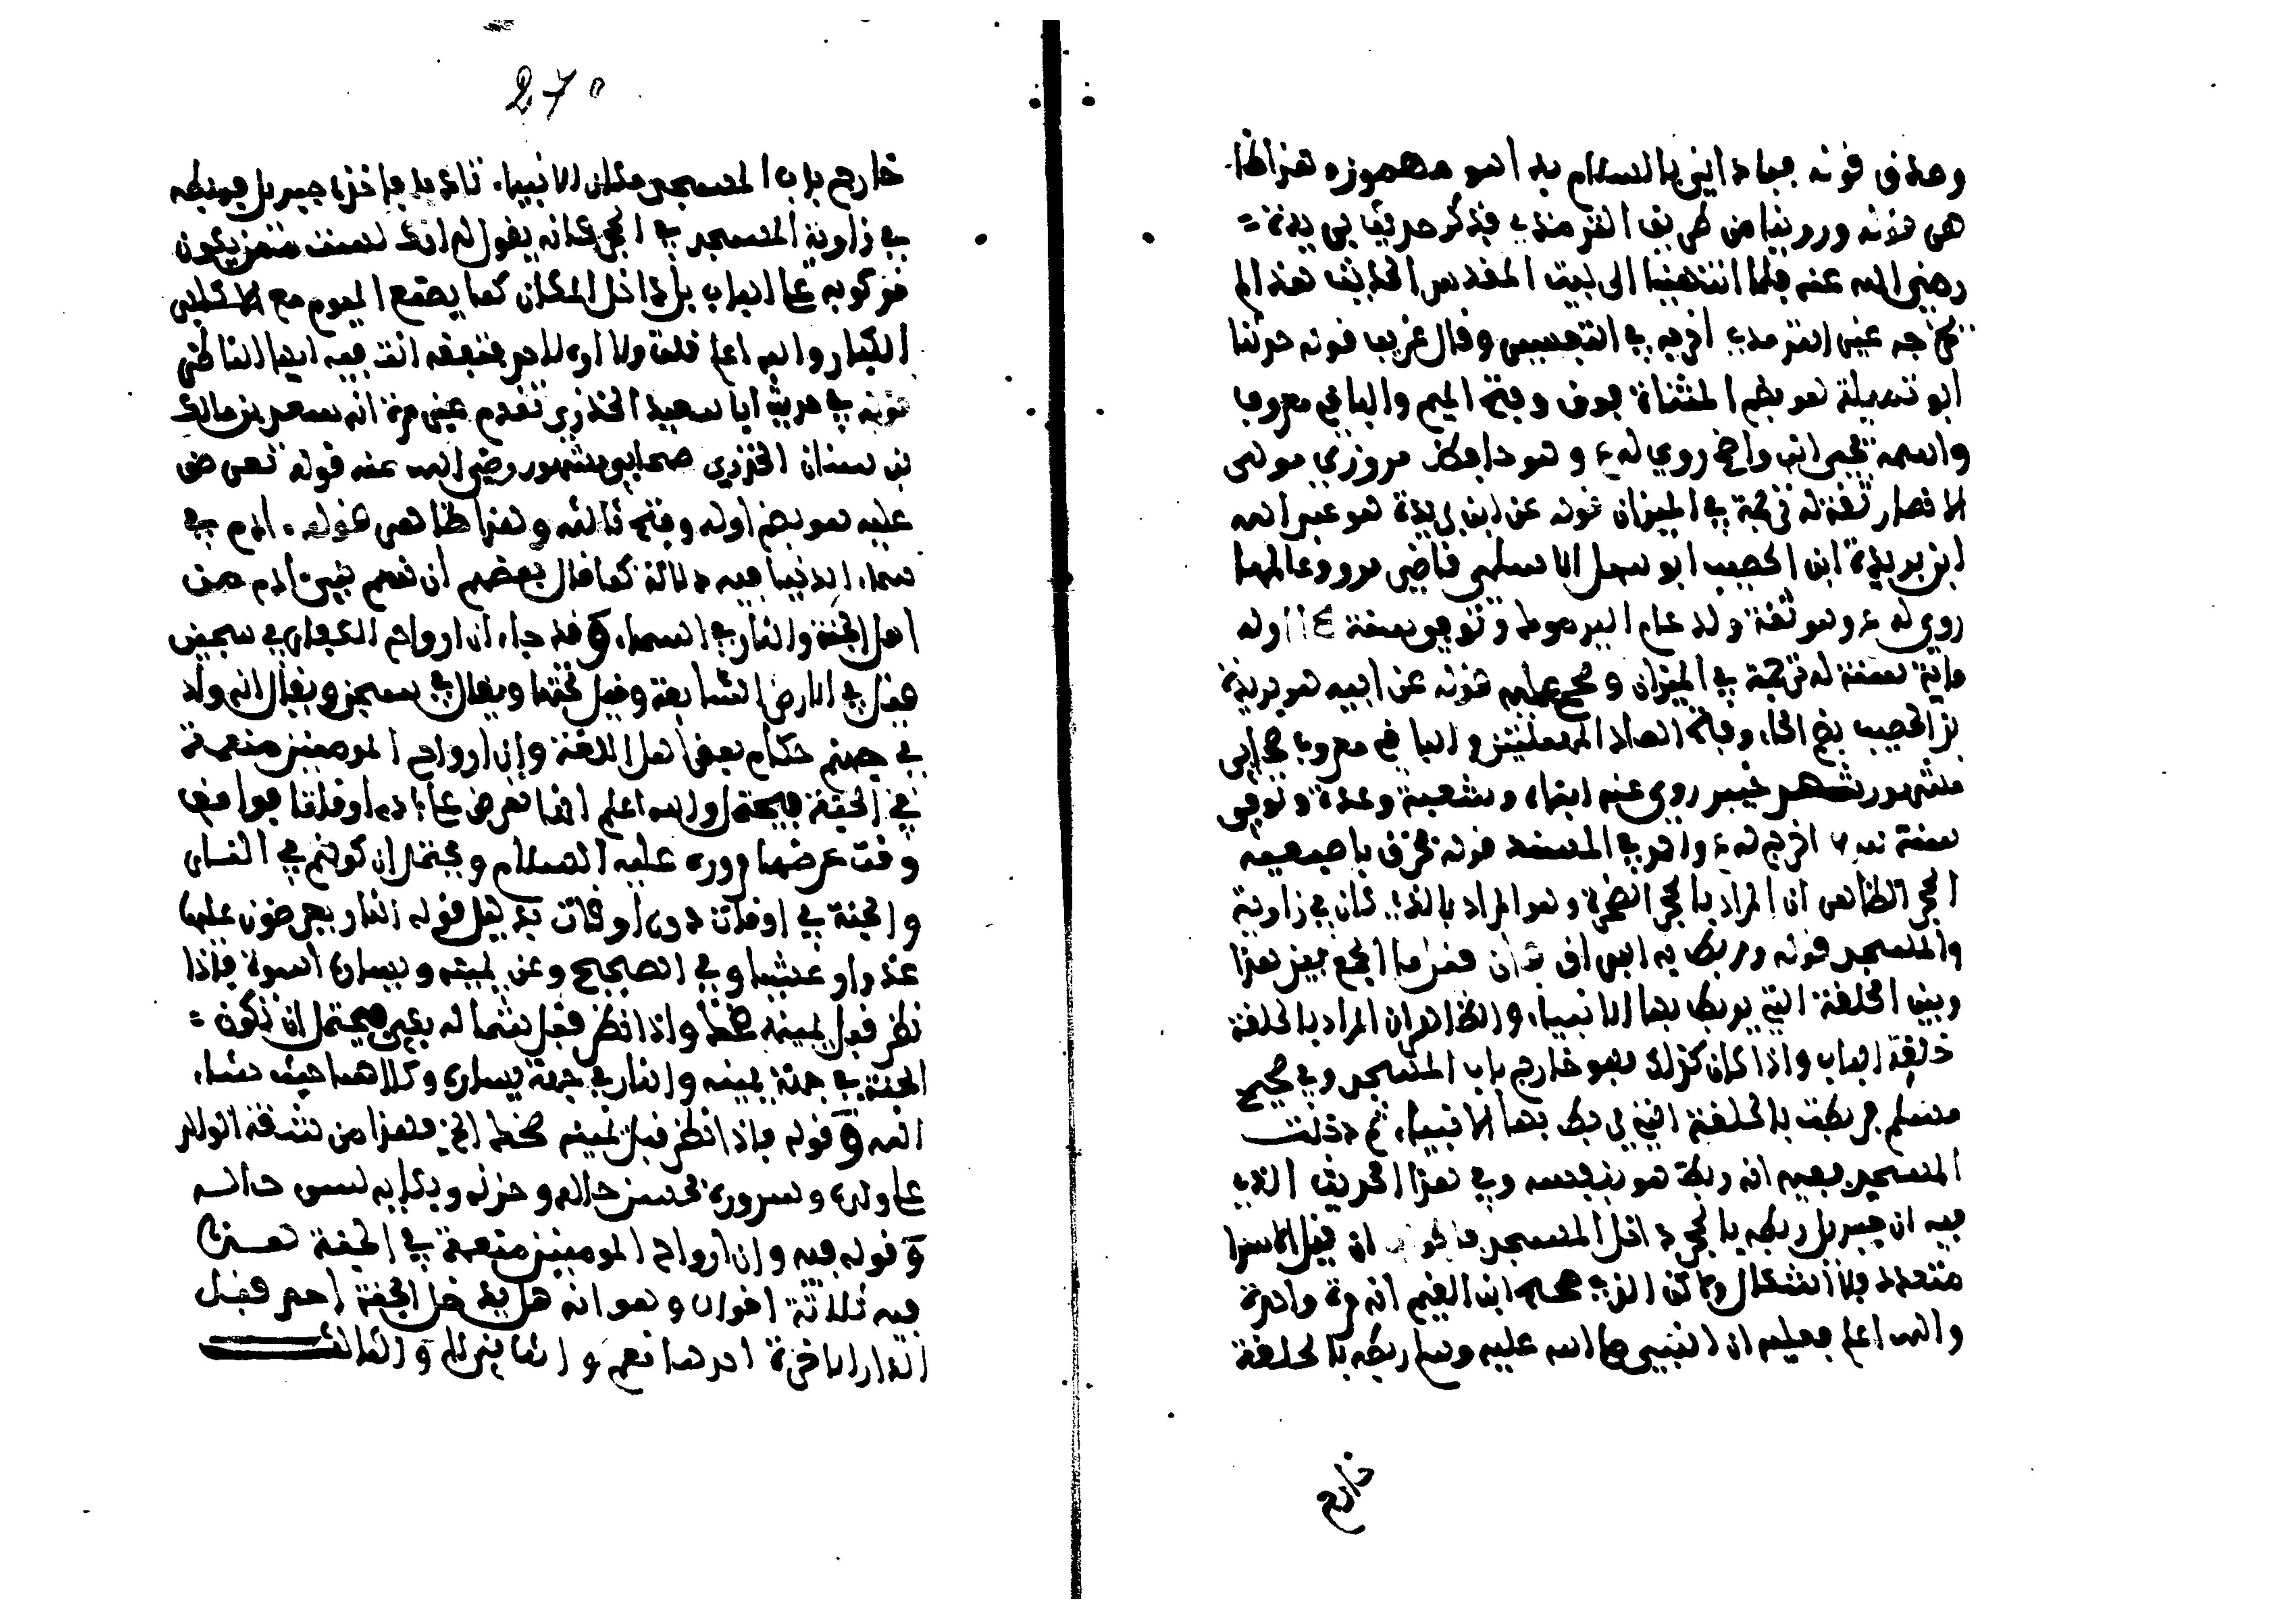 وصدق قوله فبداني بالسلام بدا هو مهموز وهذا ظا
هر قوله وروينا من طريق الترمذي فذكر حديث بريدة =
رضي الله عنه فلما انتهينا الى بيت المقدس الحديث هذا لم
يخرجه غير الترمذي اخرجه في التفسير وقال غريب قوله حدثنا
ابو تميلة هو بضم المثناة فوق وفتح الميم والباقي معروف
واسمه يحيى ابن واضح روى له ع وهو حافظ مروزي مولى
الانصار ثقة له ترجمة في الميزان قوله عن ابن بريدة هو عبد الله
ابن بريدة ابن الحصيب ابو سهل الاسلمي قاضي مرو وعالمها
روى له ع وهو ثقة ولد عام اليرموك وتوفي سنة ١١٤ وله
ماية سنة له ترجمة في الميزان وصحح عليه قوله عن ابيه هو بريدة
بن الحصيب بضم الحاء وفتح الصاد المهملتين والباقي معروف صحابي
مشهور شهد خيبر روى عنه ابناه وشعبة وعدة وتوفي
سنة اخرج له ع واحمد في المسند قوله فخرق باصبعيه
الحجر الظاهر ان المراد بالحجر الصخرة وهو المراد بالذي كان في زاوية
والمسجد قوله وربط به البراق ان قلت ما الجمع بين هذا
وبين الحلقة التي يربط بها الانبياء والظاهر ان المراد بالحلقة
حلقة الباب واذا كان كذلك فهو خارج باب المسجد وفي صحيح
مسلم فربطت بالحلقة التي يربط بها الانبياء ثم دخلت
المسجد ففيه انه ربطه هو بنفسه وفي هذا الحديث الذي
فيه ان جبريل ربطه بالحجر داخل المسجد ان قيل الاسرا
متعدد فلا اشكال ولاكن الذي صححه ابن القيم انه مرة واحدة
والله اعلم فعليه ان النبي صلى الله عليه وسلم ربطه بالحلقة
خارج
270
خارج باب المسجد مكان الانبياء تادبا فاخذه جبريل فربطه
في زاوية المسجد في الحجر كانه يقول له انك لست ممن يكون
مركوبه على الباب بل داخل المكان كما يصنع اليوم مع
الكبار والله اعلم قلته ولا اره لاحد فتعقبه انت فيه ايها الناظر
قوله في حديث ابا سعيد الخدري تقدم غير مرة انه سعد بن مالك
بن سنان الخدري صحابي مشهور رضي الله عنه قوله تعرض
عليه هو بضم اوله وفتح ثالثه وهذا ظاهر قوله ادم في
سماء الدنيا فيه دلالة كما قال بعضهم ان نسم بني ادم من
اهل الجنة والنار في السماء وقد جاء ان ارواح الكفار في سجين
فقيل في الارض السابعة وقيل تحتها ويقال في سجن ويقال انه واد
في جهنم حكاه بعض اهل اللغة وان ارواح المومنين منعمة
في الجنة فيحتمل والله اعلم انها تعرض على ادم اوقاتا فوافق
وقت عرضها مروره عليه السلام ويحتمل ان كونهم في النار
والجنة في اوقات دون اوقات بدليل قوله النار يعرضون عليها
غدوا وعشيا وفي الصحيح وعن يمينه ويساره اسودة فاذا
نظر قبل يمينه ضحك واذا نظر قبل شماله بكى فيحتمل ان تكون =
الجنة في جهة يمينه والنار في جهة يساره وكلاهما حيث شاء
الله وقوله فاذا نظر قبل يمينه ضحك الخ فهذا من شفقة الوالد
على ولده وسروره بحسن حاله وحزنه وبكايه لسوء حاله
وقوله فيه وان ارواح المومنين منعمة في الجنة هذا
فيه ثلاثة اقوال وهو انه هل يدخل الجنة احد قبل
الدار الاخرة احدها نعم والثاني لا والثالث